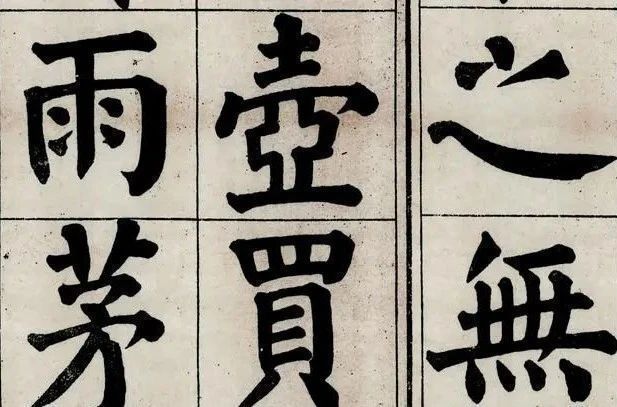 之無
壺買
雨茅